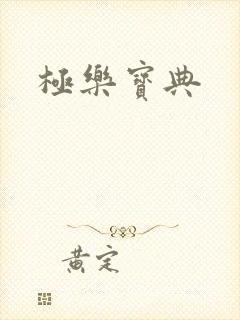 極樂寶典
黃定